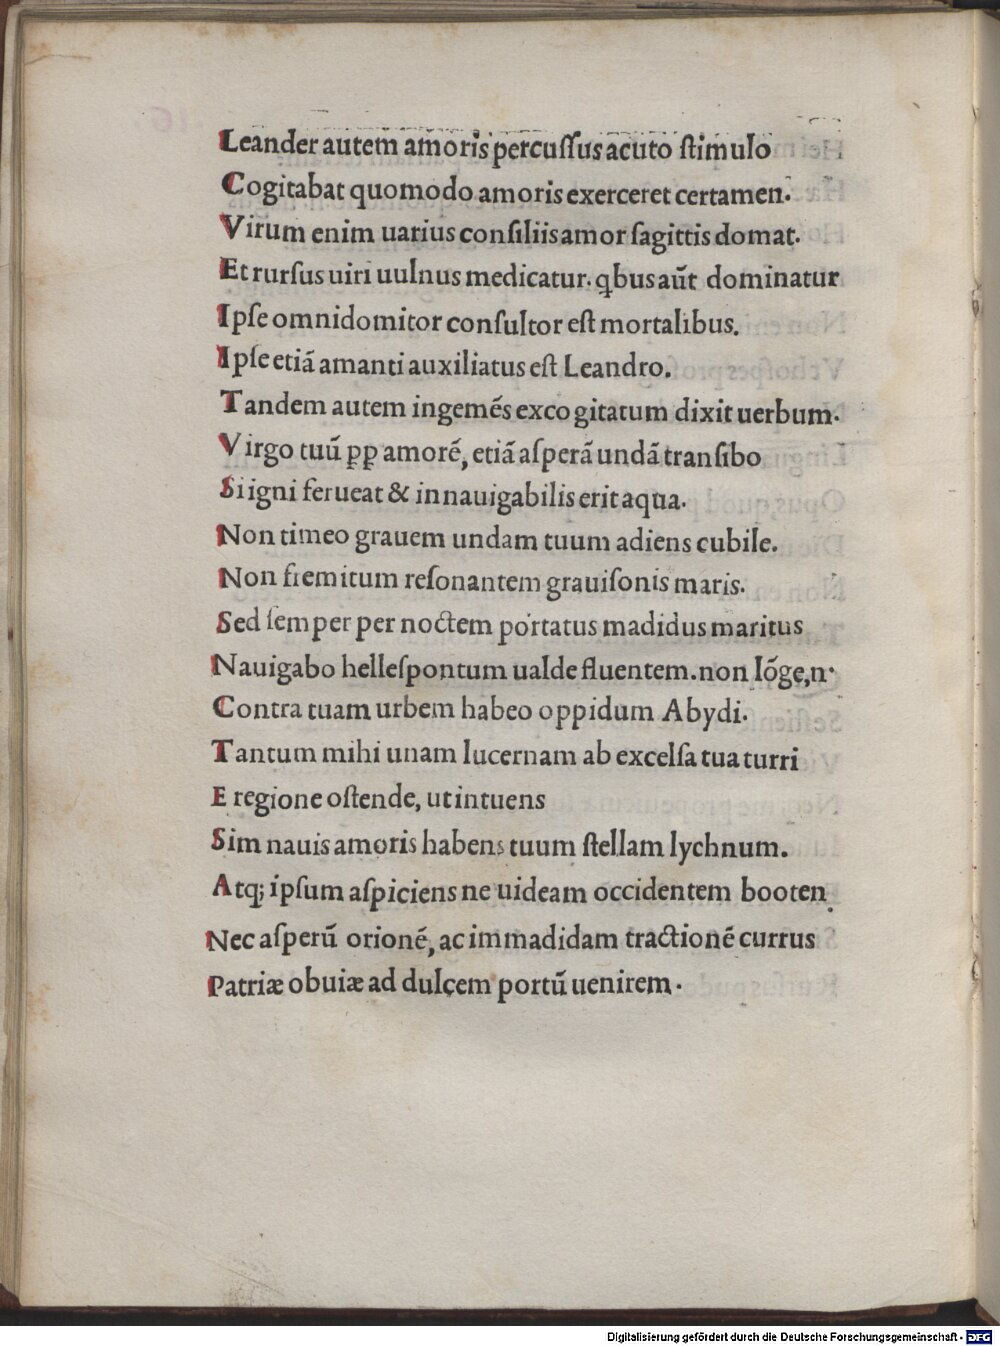 Leander autem amoris percuſſus acuto ſtimulo
Cogitabat quomodo amoris exerceret certamen.
Virum enim uarius conſiliis amor ſagittis domat.
Et rurſus uiri uulnus medicatur. qbus aūt dominatur
Ipſe omnidomitor conſultor eſt mortalibus.
Ipſe etiā amanti auxiliatus eſt Leandro.
Tandem autem ingemēs excogitatum dixit uerbum.
Virgo tuū ꝓꝑ amorē, etiā aſperā undā tranſibo
Si igni ferueat & innauigabilis erit aqua.
Non timeo grauem undam tuum adiens cubile.
Non fremitum reſonantem grauiſonis maris.
Sed ſemper per noctem portatus madidus maritus
Nauigabo helleſpontum ualde fluentem. non lōge, n.
Contra tuam urbem habeo oppidum Abydi.
Tantum mihi unam lucernam ab excelſa tua turri
E regione oſtende, ut intuens
Sim nauis amoris habens tuum ſtellam lychnum.
Atq; ipſum aſpiciens ne uideam occidentem booten
Nec aſperū orionē, ac immadidam tractionē currus
Patriæ obuiæ ad dulcem portū uenirem.
Digitalisierung gefördert durch die Deutsche Forschungsgemeinschaft - DFG